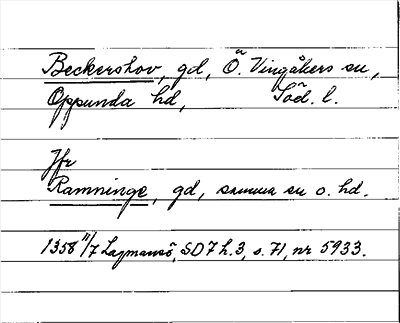 Beckershov, gd, Ö. Vingåkers sn,
Oppunda hd, Söd. l.
Jfr
Ramninge, gd, samma sn o. hd.
1358 11/7 Lagmansö, SD 7 h. 3, s. 71, nr 5933.